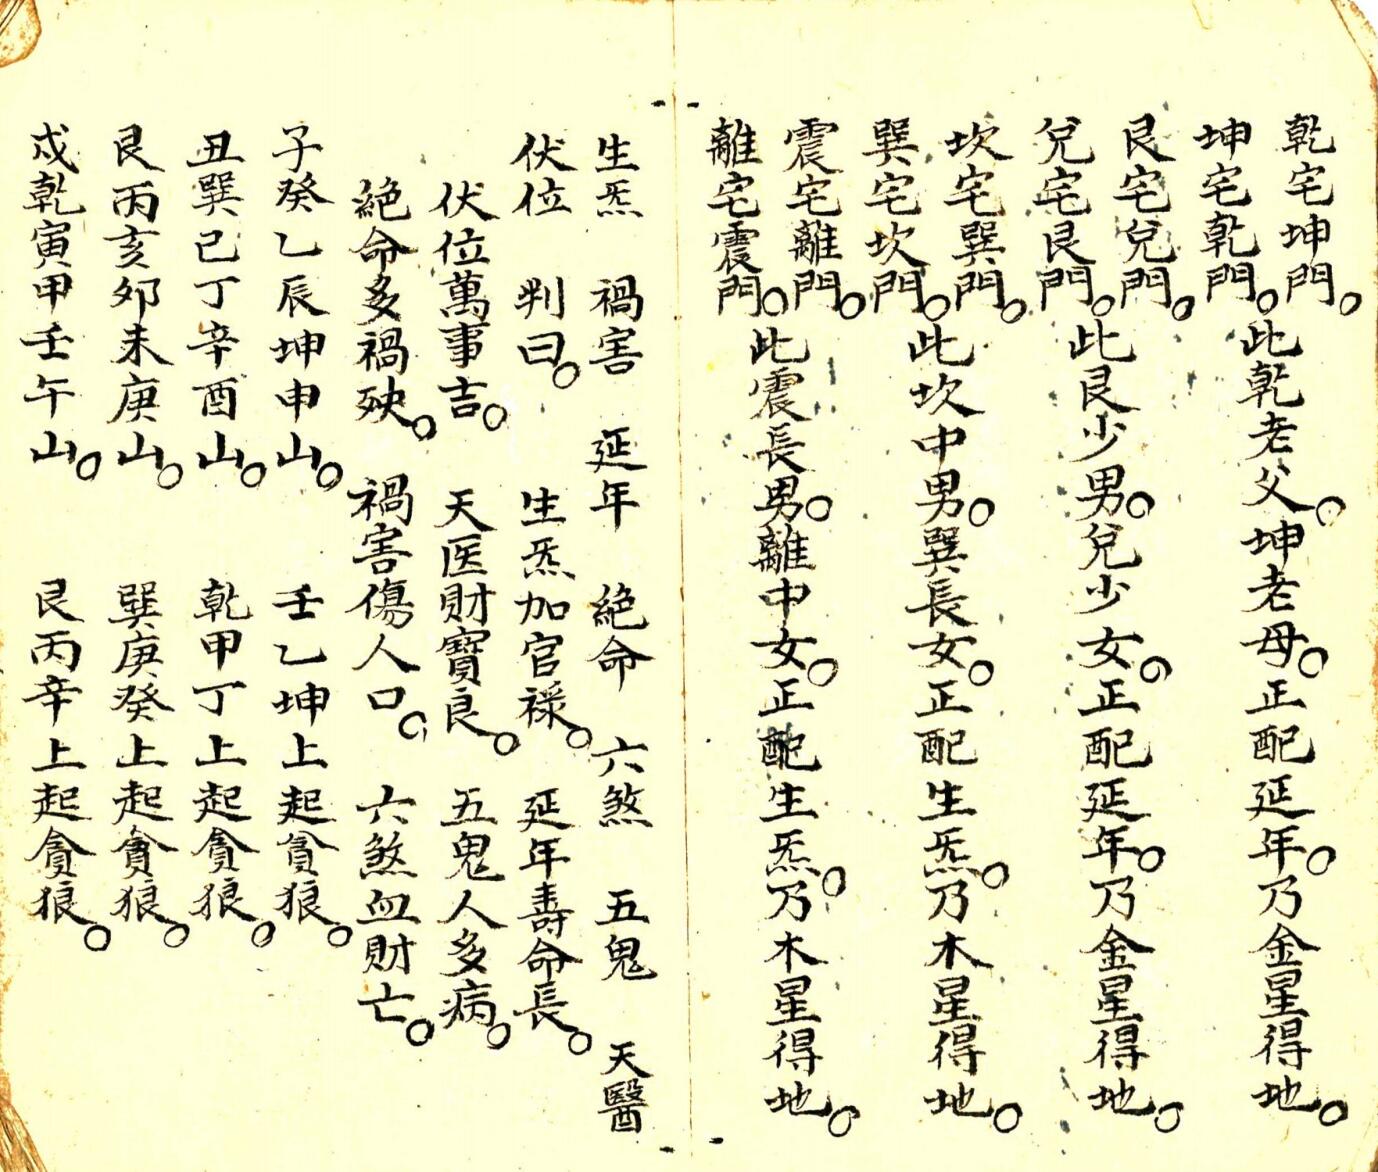 乾宅坤門。
坤宅乾門。
此乾老父。坤老母。正配延年。乃金星得地。
艮宅兌門。
兌宅艮門。
此艮少男。兌少女。正配延年。乃金星得地。
坎宅巽門。
巽宅坎門。
此坎中男。巽長女。正配生炁。乃木星得地。
震宅離門。
離宅震門。
此震長男。離中女。正配生炁。乃木星得地。
生炁 禍害 延年 絕命 六煞 五鬼 天醫
伏位 判曰。 生炁加官祿。 延年壽命長。
伏位萬事吉。 天医財寶良。 五鬼人多病。
絕命多禍殃。 禍害傷人口。 六煞血財亡。
子癸乙辰坤申山。 壬乙坤上起貪狼。
丑巽巳丁辛酉山。 乾甲丁上起貪狼。
艮丙亥卯未庚山。 巽庚癸上起貪狼。
戍乾寅甲壬午山。 艮丙辛上起貪狼。